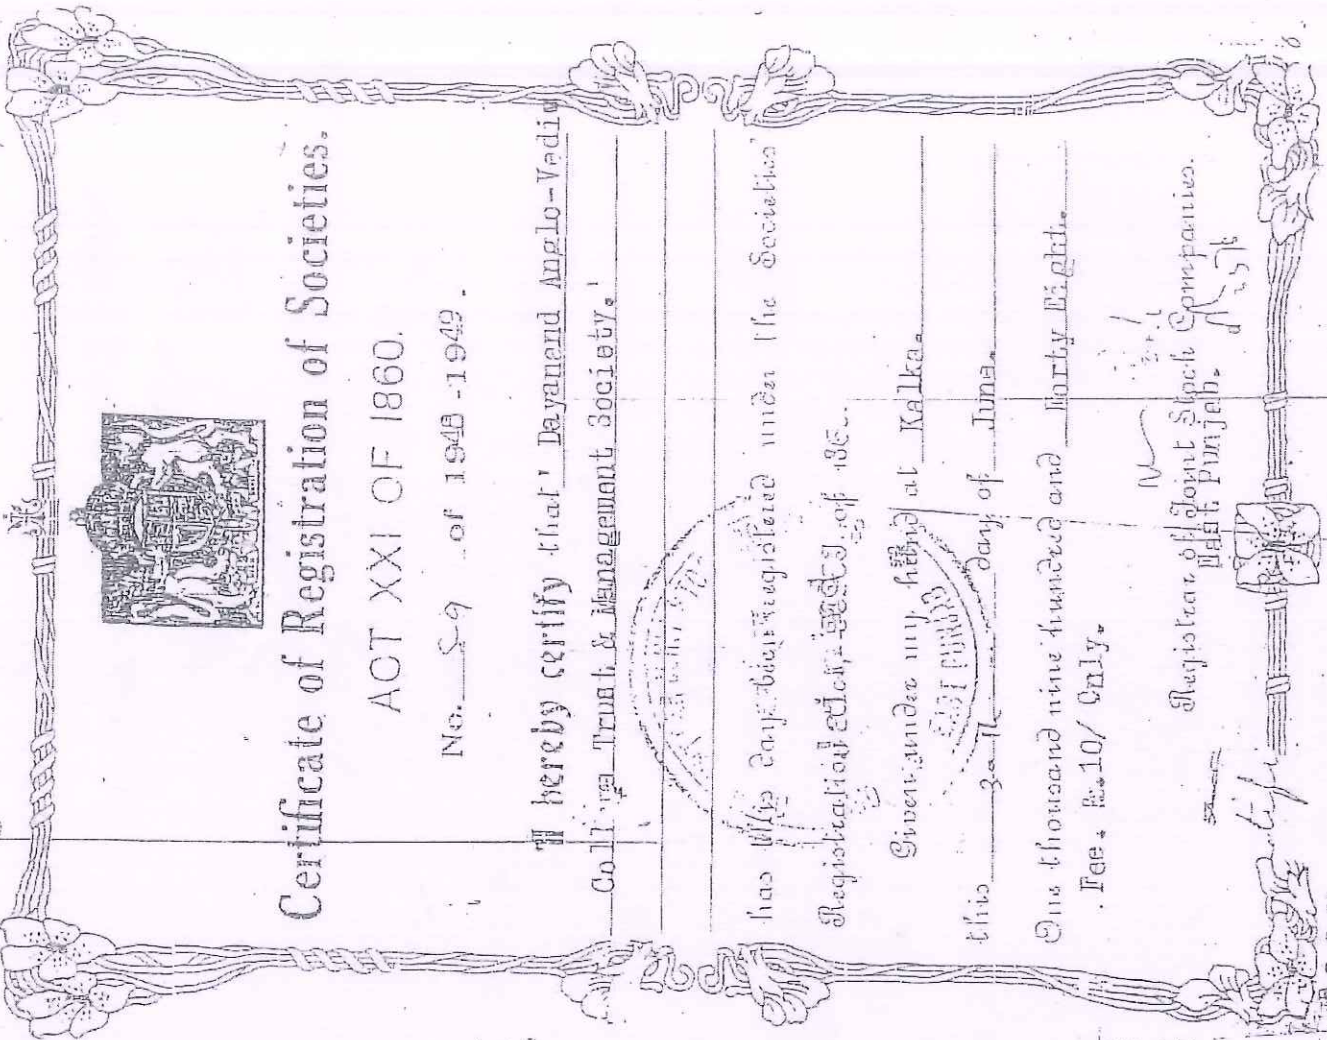 Certificate of Registration of Societies.
ACT XXI OF 1860.
No. 59 of 1948-1949.
I hereby certify that 'Dayanand Anglo-Vedic
College Trust & Management Society.'
has this day been registered under the Societies'
Registration Act, of 186
Given under my hand at Kalka.
EAST PUNJAB
this day of June
One thousand nine hundred and Forty Eight.
Fee. Rs.10/ Only.
Registrar of Joint Stock Companies.
East Punjab.